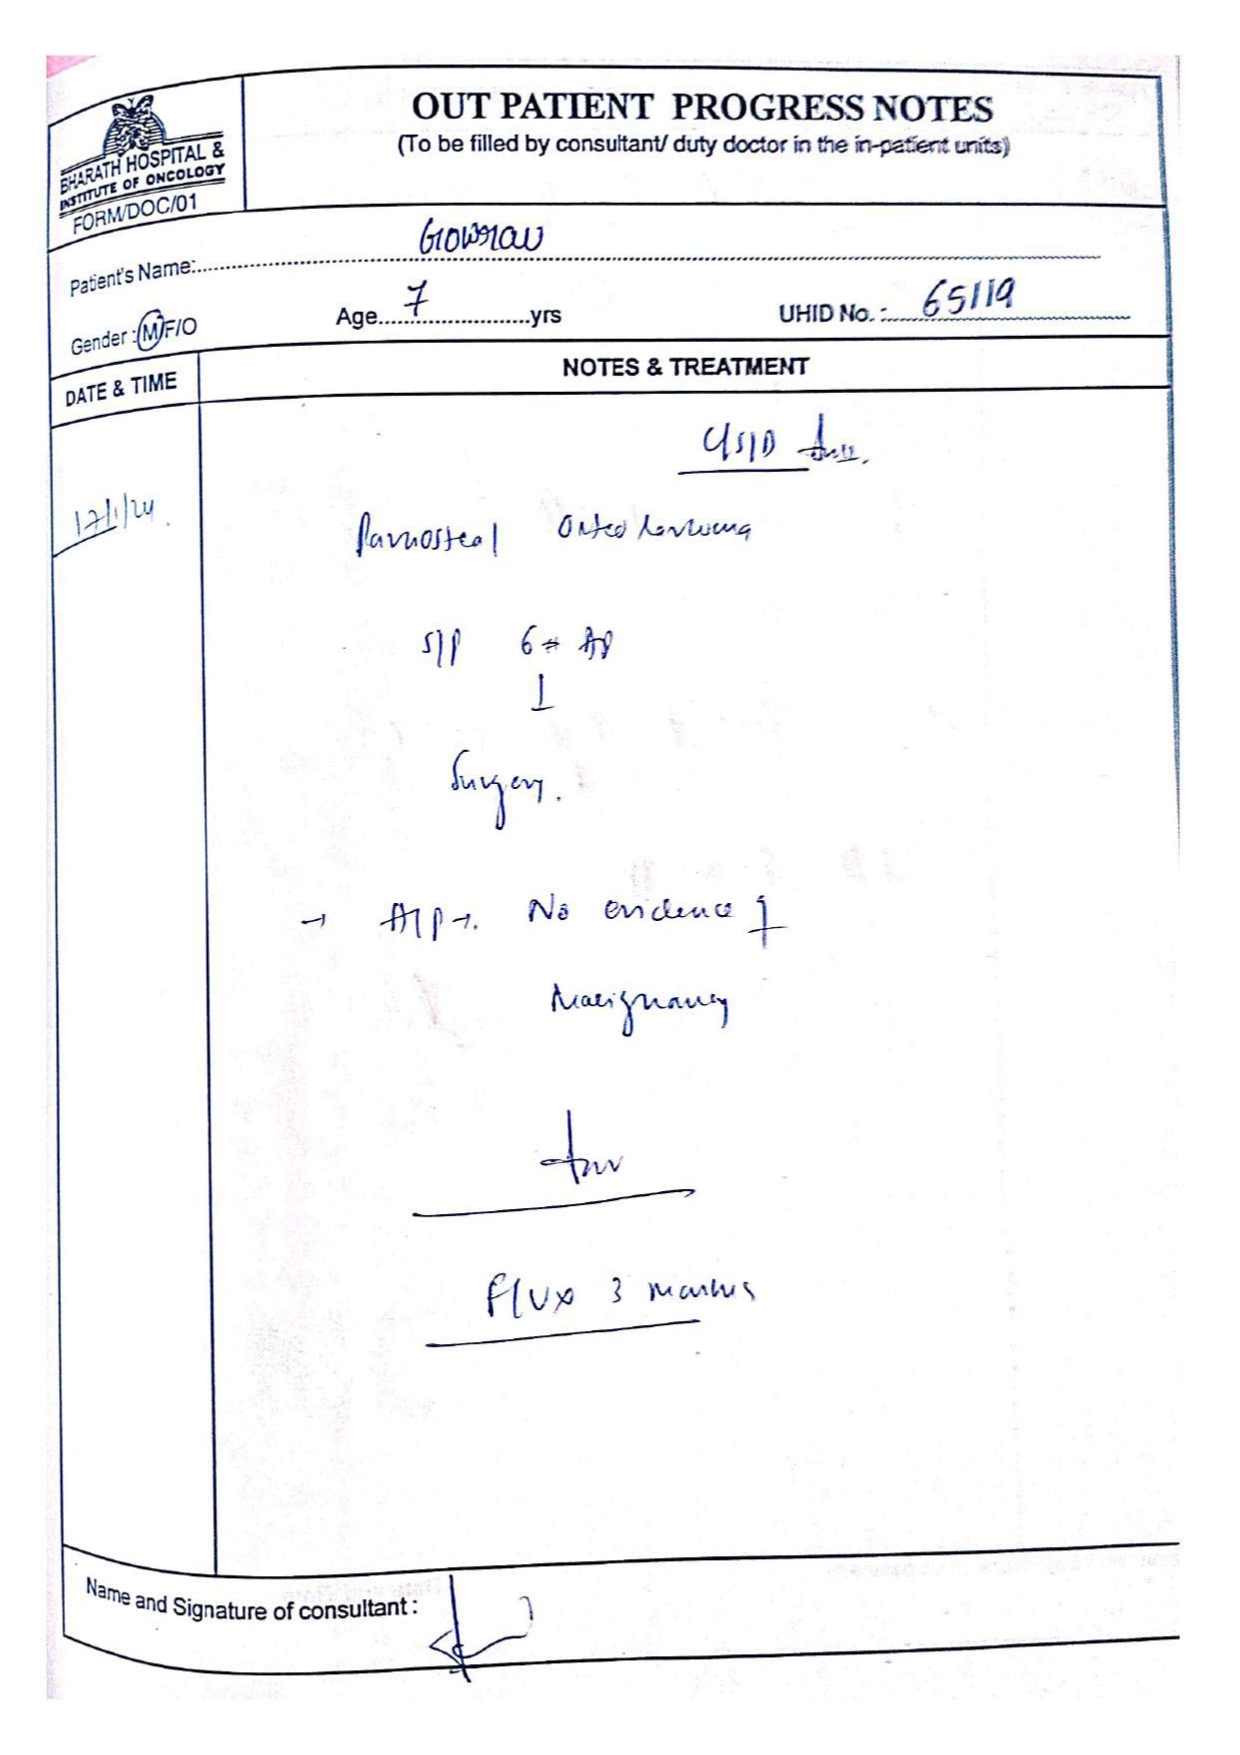 BHARATH HOSPITAL &
INSTITUTE OF ONCOLOGY
FORM/DOC/01
OUT PATIENT PROGRESS NOTES
(To be filled by consultant/ duty doctor in the in-patient units)
Patient's Name: Gowrav
Gender : M/F/O Age 7 yrs UHID No. : 65119
DATE & TIME NOTES & TREATMENT
C/S/D
17/1/24. Parosteal Osteosarcoma
S/P 6 AP
↓
Surgery.
→ No evidence of
Malignancy
3 months
Name and Signature of consultant :